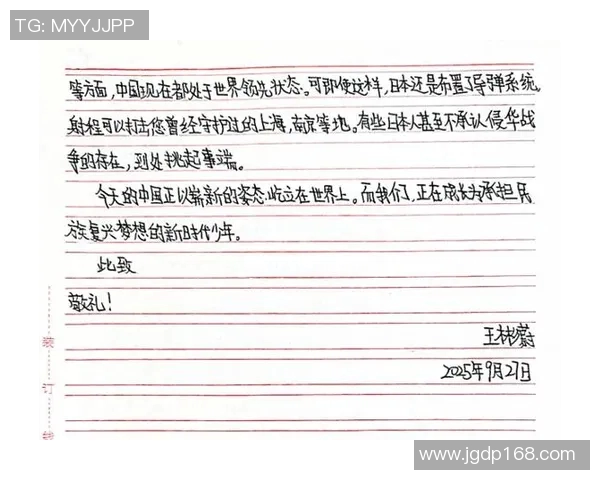 TG: MYYJJPP
等方面，中国现在都处于世界领先状态。可即使这样，日本还是布置了导弹系统，
射程可以打击您曾经守护过的上海，南京等地。有些日本人甚至不承认侵华战
争的存在，到处挑起事端。
今天的中国正以崭新的姿态屹立在世界上。而我们，正在成长为承担民
族复兴梦想的新时代少年。
此致
敬礼！
王彬蔚
2025年9月27日
装
订
线
www.jgdp168.com